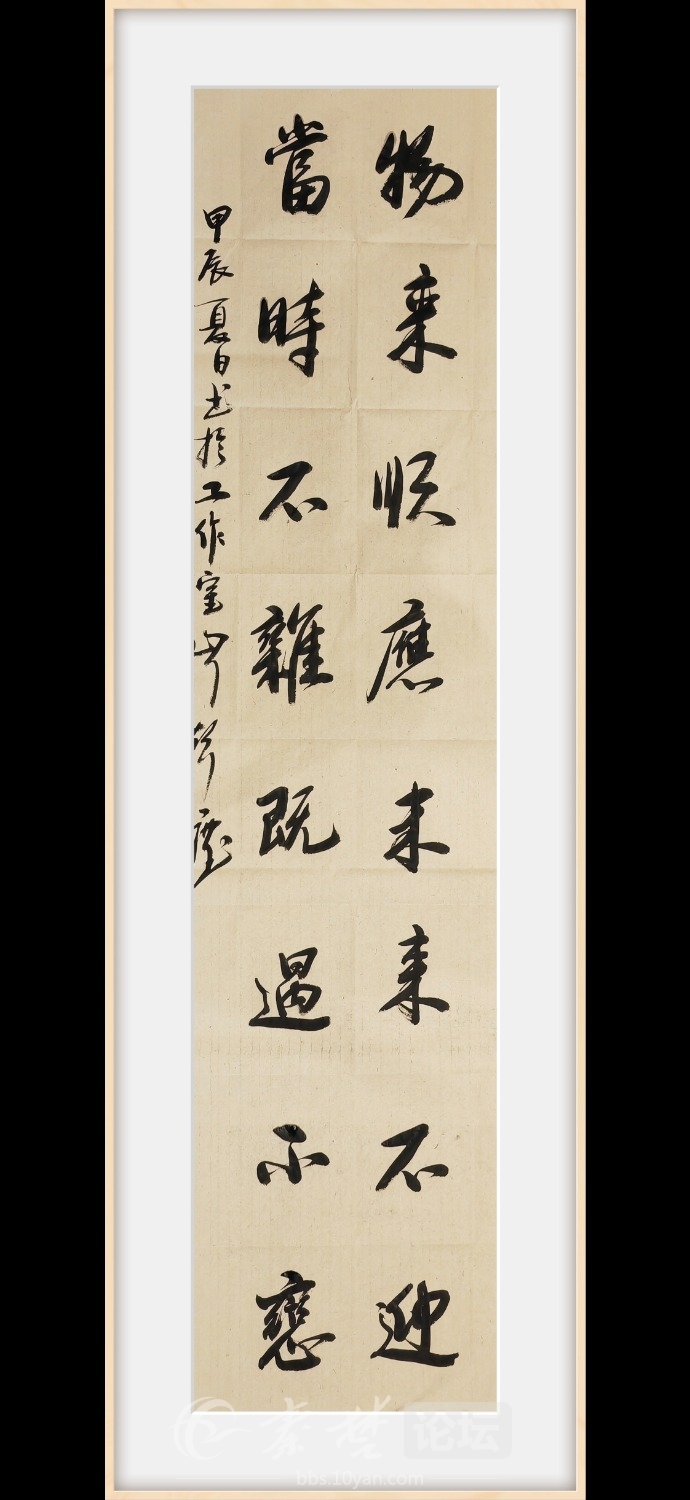 物来順應未来不迎
當時不雜既過不戀
甲辰夏日书於工作室
秦楚论坛
bbs.10yan.com